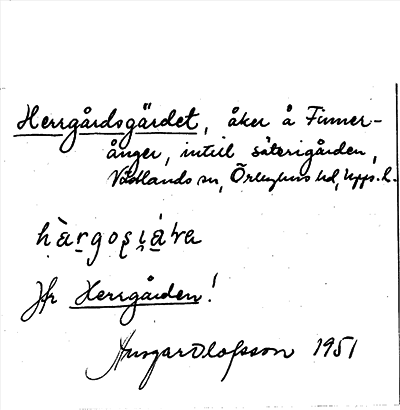 Herrgårdsgärdet, åker å Finner-
ånger, intill säterigården,
Västlands sn, Örbyhus hd, Upps. l.
Jfr Herrgården!
Ansgar Olofsson 1951